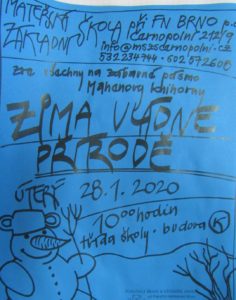 MATEŘSKÁ
ZÁKLADNÍ ŠKOLA při FN BRNO p.o.
Černopolní 212/9
info@ms-zscernopolni.cz
532 234 944 • 602 572 608
zve všechny na zábavné pásmo
Mahenovy knihovny
ZIMA V LŮNĚ
PŘÍRODĚ
ÚTERÝ
28.1.2020
10 00 hodin
třída školy • budova K